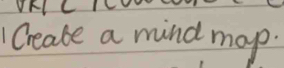 Create a mind map.